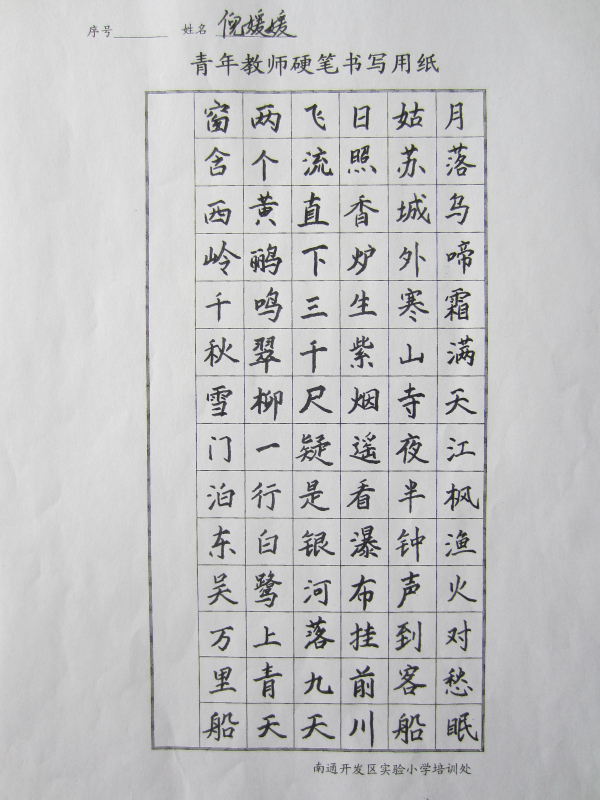 序号______ 姓名 倪媛媛
青年教师硬笔书写用纸
月落乌啼霜满天江枫渔火对愁眠
姑苏城外寒山寺夜半钟声到客船
日照香炉生紫烟遥看瀑布挂前川
飞流直下三千尺疑是银河落九天
两个黄鹂鸣翠柳一行白鹭上青天
窗含西岭千秋雪门泊东吴万里船
南通开发区实验小学培训处